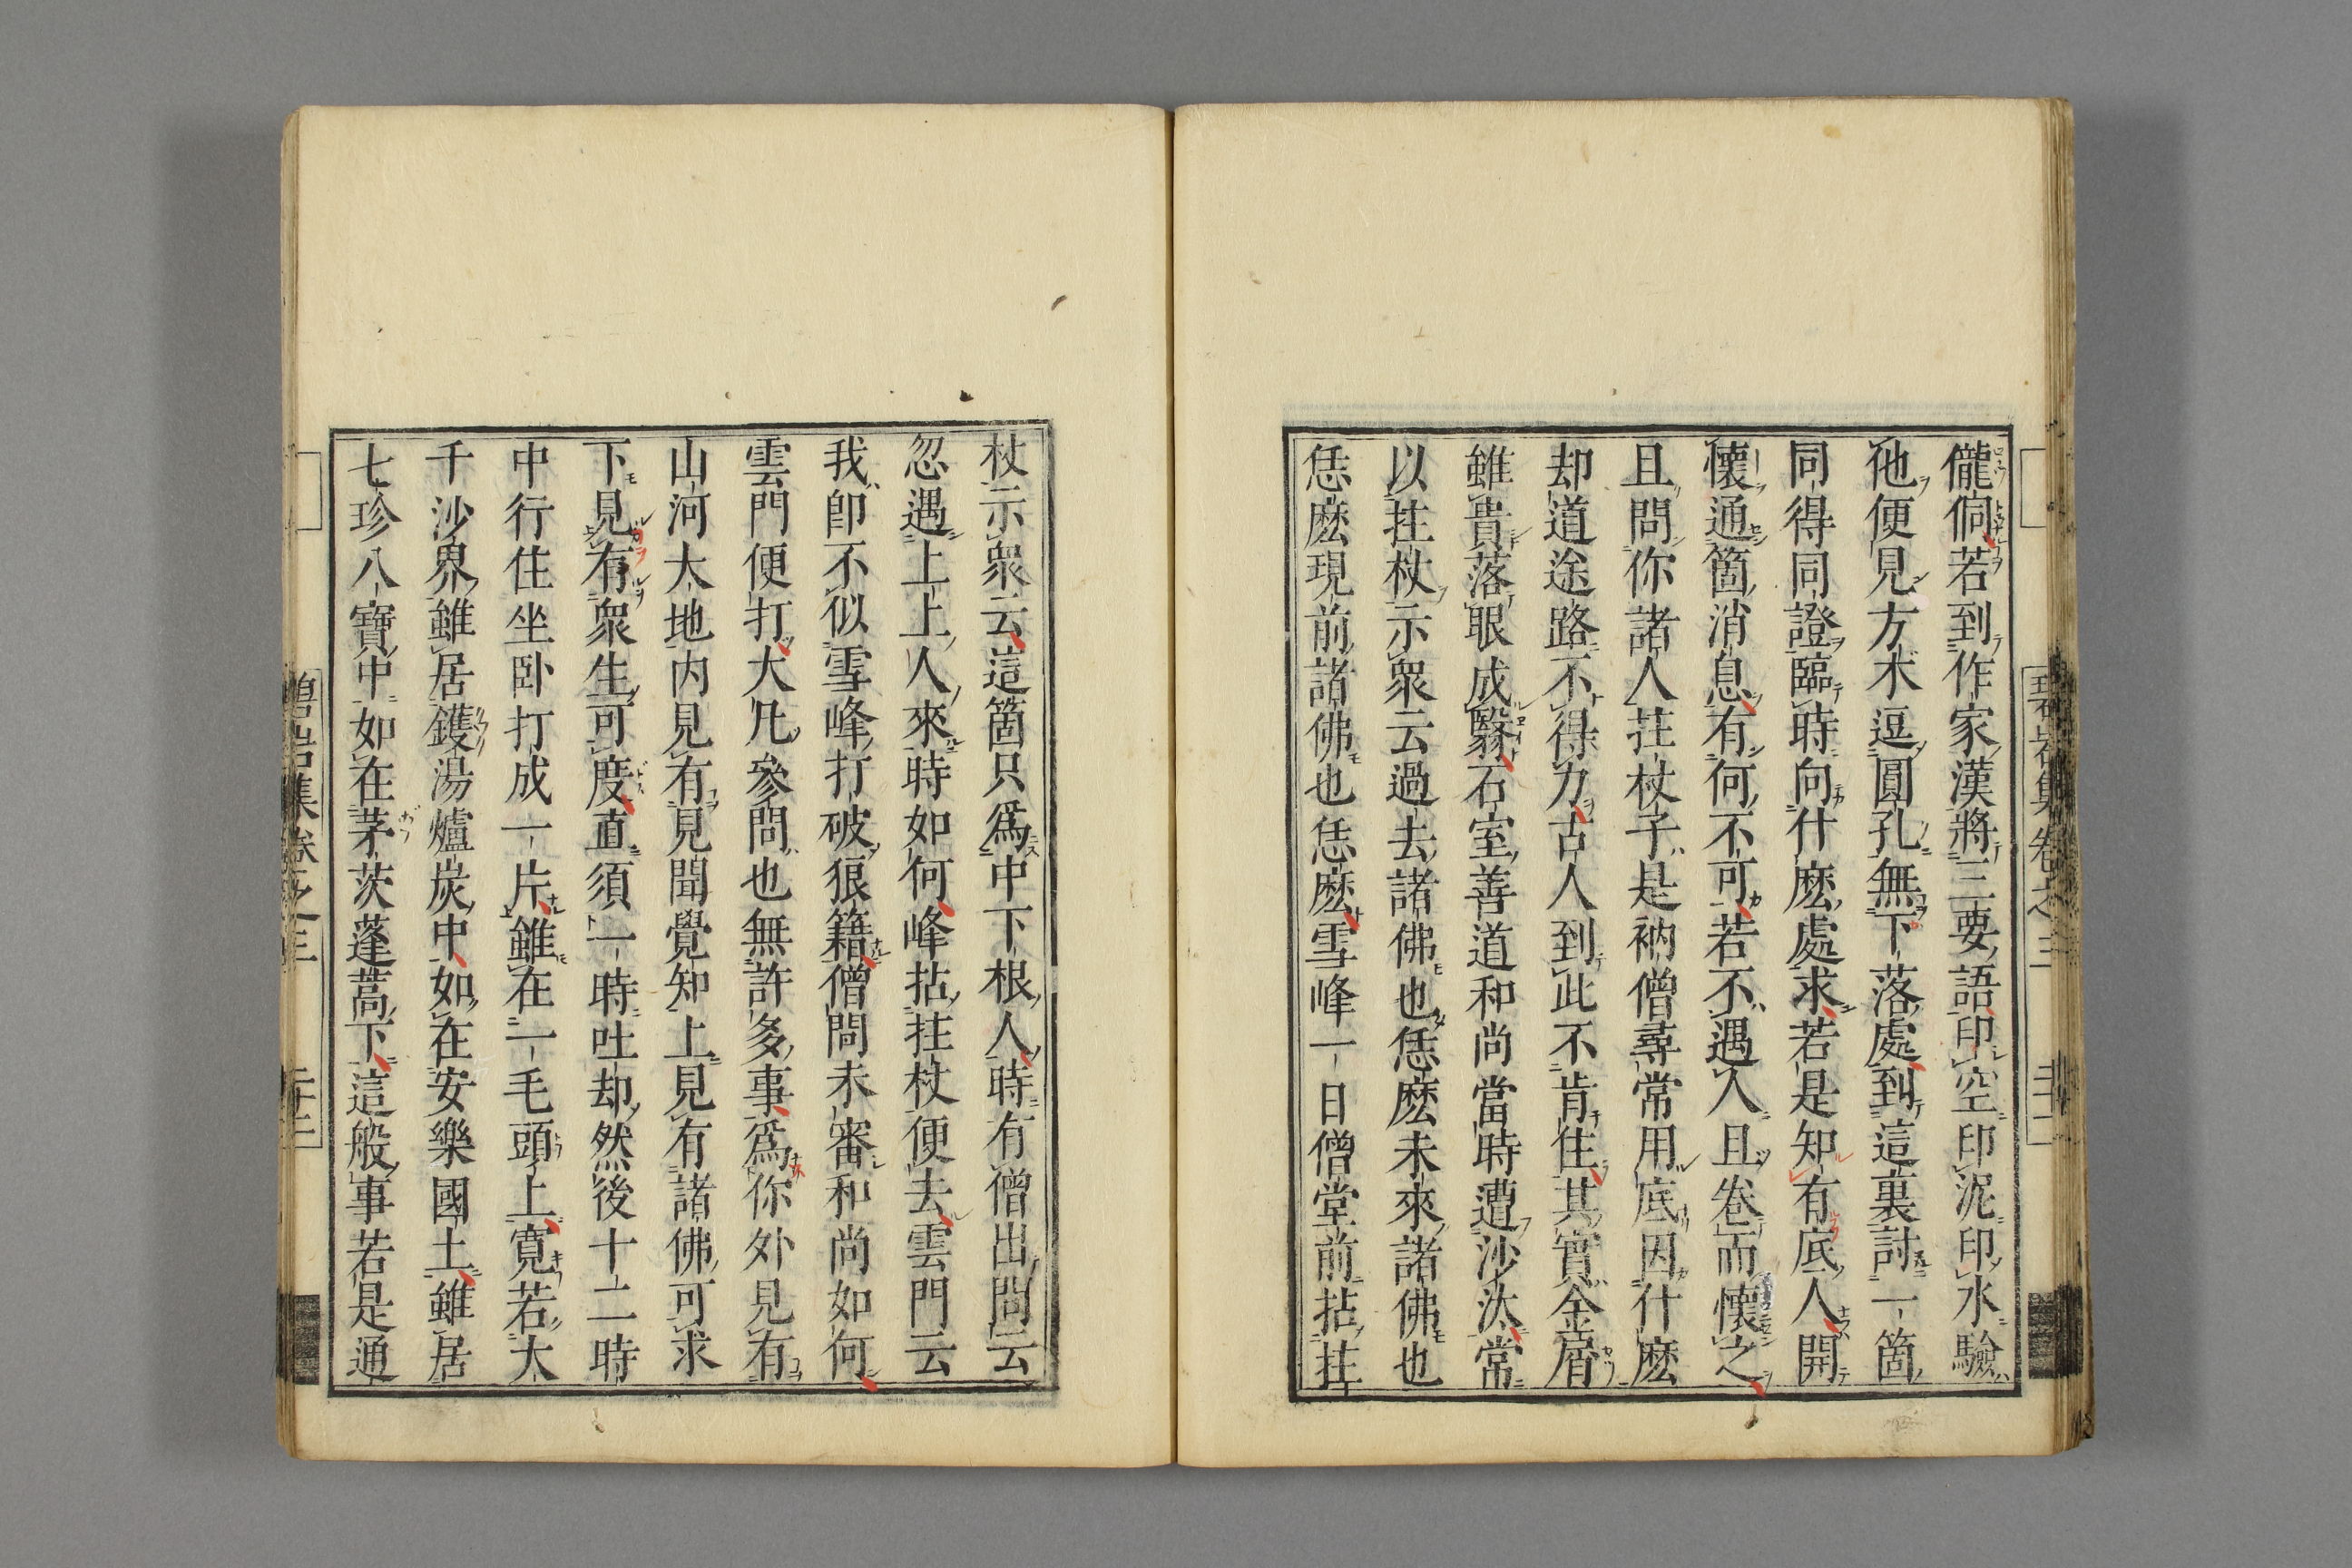 儱侗若到作家漢將三要語印空印泥印水驗
他便見方木逗圓孔無下落處到這裏討一箇
同得同證臨時向什麽處求若是知有底人開
懷通箇消息有何不可若不遇人且卷而懷之
且問你諸人拄杖子是衲僧尋常用底因什麽
却道途路不得力古人到此不肯住其實金屑
雖貴落眼成翳石室善道和尚當時遭沙汰常
以拄杖示衆云過去諸佛也恁麽未來諸佛也
恁麽現前諸佛也恁麽雪峰一日僧堂前拈拄
杖示衆云這箇只爲中下根人時有僧出問云
忽遇上上人來時如何峰拈拄杖便去雲門云
我即不似雪峰打破狼籍僧問未審和尚如何
雲門便打大凡參問也無許多事爲你外見有
山河大地内見有見聞覺知上見有諸佛可求
下見有衆生可度直須一時吐却然後十二時
中行住坐卧打成一片雖在一毛頭上寛若大
千沙界雖居鑊湯爐炭中如在安樂國土雖居
七珍八寶中如在茅茨蓬蒿下這般事若是通
碧岩集卷之三